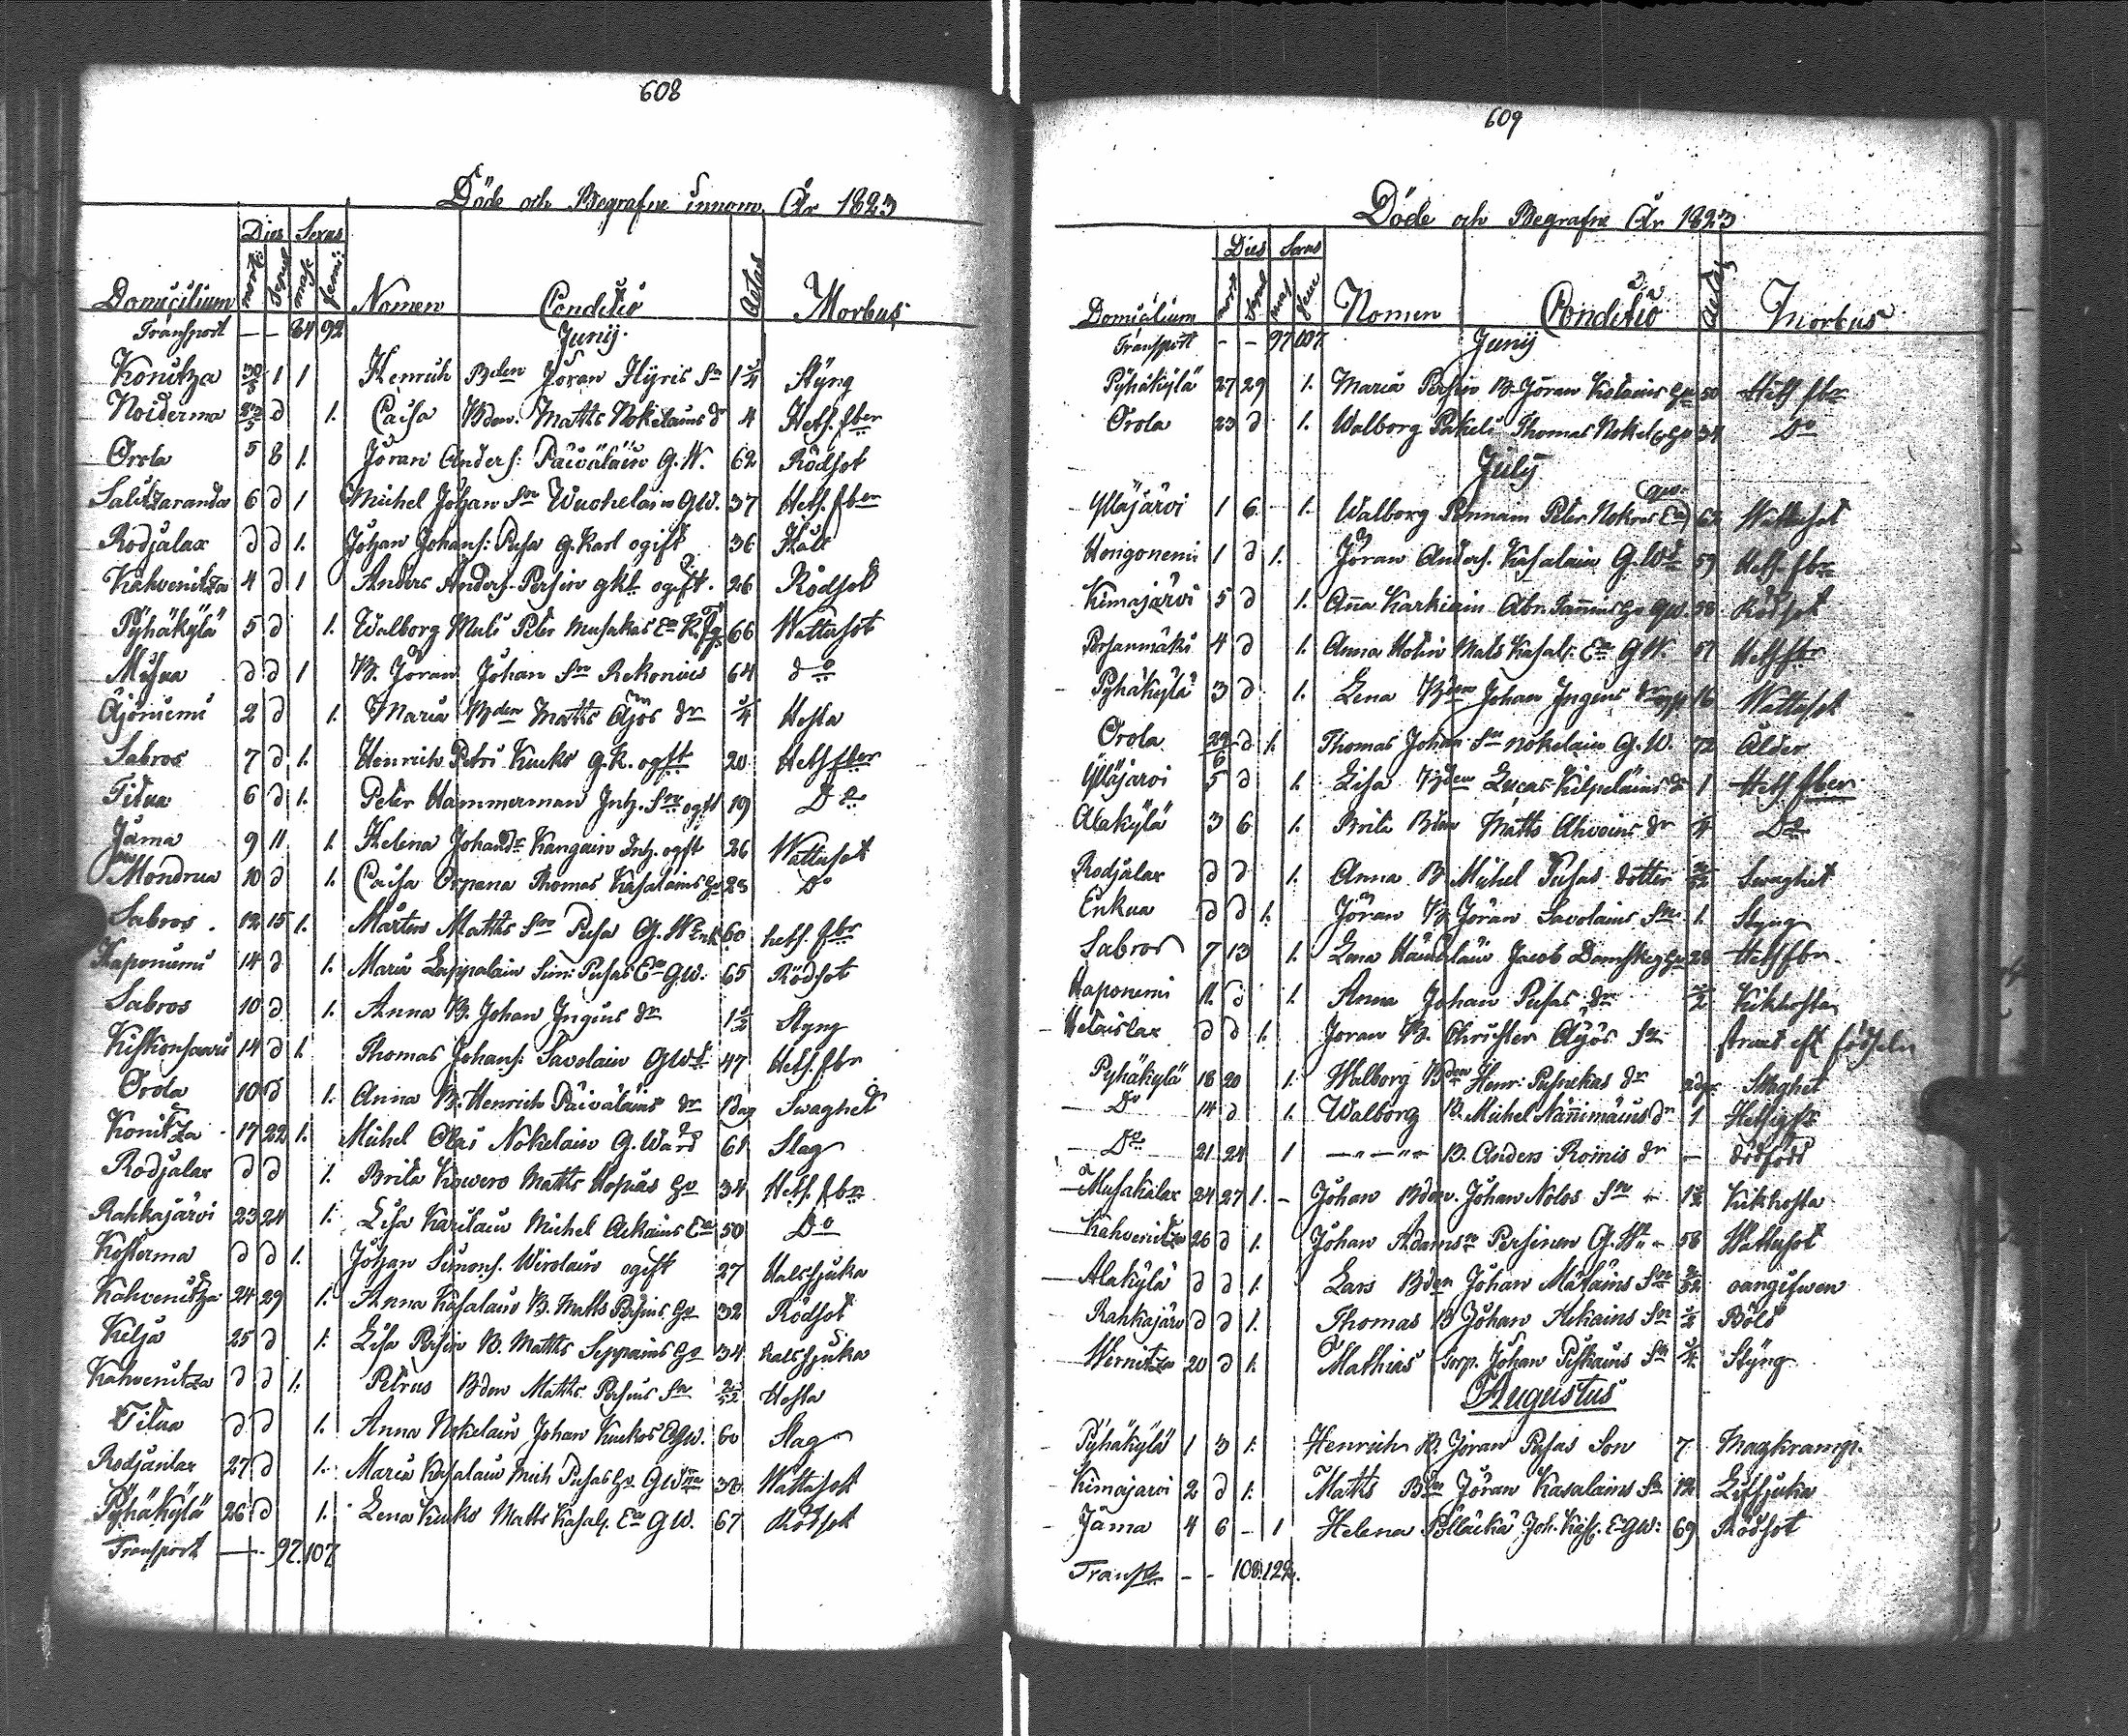 608
Döde och Begrafne innom År 1823
Dies Sexus
Domicilium mort: Sepul masc fem: Nomen Conditio Aetas Morbus
Transport — — 84 92 Junij
Konitza 30/5 1 1 Henrich Bden Jöran Hyris Sn 1 3/4 Styng
Noiderma d 1. Caisa Bden. Matts Nokelains dr 4 Hets. fber
Orola 5 8 1. Jöran Anders: Päiväläin G.W. 62 Rödsot
Salitzaranda 6 d 1 Michel Johan Sn Wuohelain GW. 37 Hets. fber
Rodjalax d d 1. Johan Johans: Pusa G. Karl ogift 36 Håll
Kahvenitza 4 d 1 Anders Anders. Persin gkl ogift. 26 Rödsot
Pyhäkylä 5 d 1. Walborg Muli Peter Musakas Ea 66 Wattusot
Musua d d 1 B. Jöran Johan Sn Rekonius 64 do
Äjöniemi 2 d 1. Maria Bden Matts Äjös dr 1/4 Hosta
Sabros 7 d 1. Henrich Petri Kuuks G.K. ogft 20 Hetsfber
Titua 6 d 1. Peter Hammerman Inh. Sn ogft 19 Do
Jama 9 11 1. Helena Johans dr Kangain Inh. ogft 26 Wattusot
Mondrua 10 d 1. Caisa Orpana Thomas Kasalains Hu 23 Do
Sabros. 12 15 1. Mårten Matts Sn Pusa G. W Enk 60 hets. fbr
Haponiemi 14 d 1. Maria Lappalain Sim: Pusas Ea GW. 65 Rödsot
Sabros 10 d 1. Anna B. Johan Ingius dr 1 1/2 Styng
Kiskonsaari 14 d 1. Thomas Johans: Savolain GWd 47 Hets. fbr
Orola 10 d 1. Anna B. Henrich Päiväläins dr 1 dag Swaghet
Konitza 17 22 1. Michel Olai Nokelain G. Wärd 61 Slag
Rodjalax d d 1. Brita Kowero Matts Hopias Hu 34 Hets. fbr
Rahkajärvi 23 24 1. Lisa Karilain Michel Aikains Ea 50 Do
Kosterma d d 1. Johan Simons. Wirolain ogift 27 Halssjuka
Kahvenitza 24 29 1. Anna Kasalain B. Matts Persins Hu 32 Rödsot
Kelja 25 d 1. Lisa Persin B. Matts Seppains Hu 34 halssjuka
Kahvenitza d d 1. Petrus Bden Matts Persins Sn Hosta
Titua d d 1. Anna Nokelain Johan Kuukos EGW. 60 Slag
Rodjanlax 27 d 1. Maria Kasalain Mich Pusas Hu 38 Wattusot
Pyhäkylä 26 d 1. Lena Kuuks Matts Kasal. Ea GW. 67 Rödsot
Transport — 97. 107.
609
Döde och Begrafne År 1823
Dies Sexus
Domicilium mort Sepul mas fem Nomen Conditio Aetas Morbus
Transport - - 97 107. Junij
Pyhäkylä 27 29 1. Maria Persin B. Jöran Kolains Hu 50 Hets fbr
Orola 23 d 1. Walborg Pukeli Thomas Nokel Hu 34 Do
July
Yläjärvi 1 6 - 1. Walborg Pennain Peter Ea GW. 62 Wattusot
Hongonemi 1 d 1. Jöran Anders. Kasalain G. Wd 59 Hets. fbr
Kimajärvi 5 d 1. Anna Karhiain Abr. Tannins Hu GW. 58 Rödsot
Porsanmäki 4 d 1. Anna Hotin Mats Kasal. Ea G W. Hetsfbr
Pyhäkylä 3 d 1. Lena Bden Johan Ingius dr ogft 16 Wattusot
Orola 29/6 d 1. Thomas Johan Sn Nokelain G. W. 72 Ålder
Yläjärvi 5 d 1. Lisa Bden Lucas Kilpeläins dr 1 Hets fber
Alakylä 3 6 1. Brita Bden Matts Ahvains dr 4 Do
Rodjalax d d 1. Anna B. Michel Pusas dotter Swaghet
Enkua d d 1. Jöran B. Jöran Savolains Sn. 1. Styng
Sabros 7 13 1. Lena Hämäläin Jacob Damskeg Hu 28 Hetsfbr
Haponemi 11. d 1. Anna Johan Pusas dr 1/2 Kikhosta
Hetaislax d d 1. Joran B. Christer Äijös Sn strax eft födseln
Pyhäkylä 18 20 1. Walborg Bden Henr: Pusnekas dr Swaghet
Do 14 d 1. Walborg B. Michel Nännimäins dr 1 Hetsig fbr
Do 21 24 1 — " — " — B. Anders Roinis dr — dödfödd
Musakalax 24 27 1. - Johan Bden. Johan Nolos Sn 1 1/2 Kikhosta
Kahvenitza 26 d 1. Johan Adamsn Persinen G. W. 58 Wattusot
Alakylä d d 1. Lars Bden Johan Matains Sn oangifwen
Rahkajärvi d d 1. Thomas B Johan Aikains Sn 1/2 Böld
Wernitza 20 d 1. Mathias Torp. Johan Piskains Sn 1/4 Styng
Augustus
Pyhäkylä 1 3 1. Henrich B. Jöran Pusas Son 7 Magkramp.
Kimajarvi 2 d 1. Matts Bden Jöran Kasalains Sn 12 Lefsjuka
Jama 4 6 - 1 Helena Pölläckä Joh. Kas. EGW: 69 Rödsot
Transpt - - 108. 129.